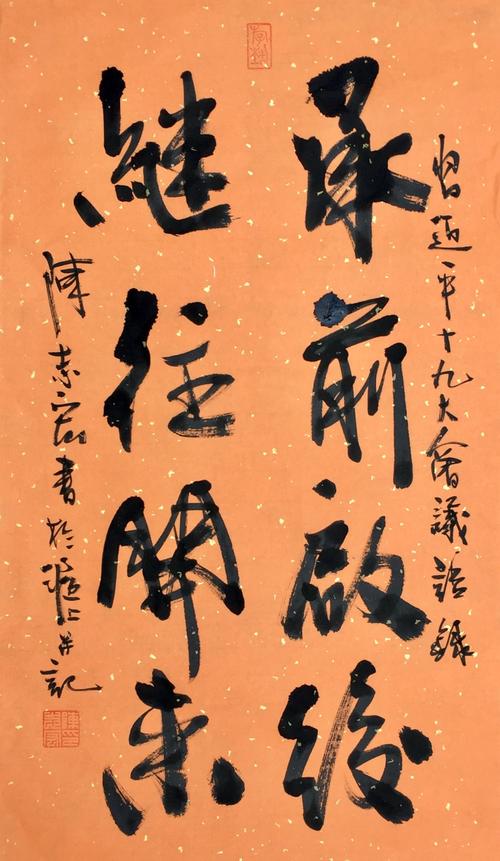 習近平十九大會議語錄
承前啟後
繼往開來
陳志宏書於滬上并記